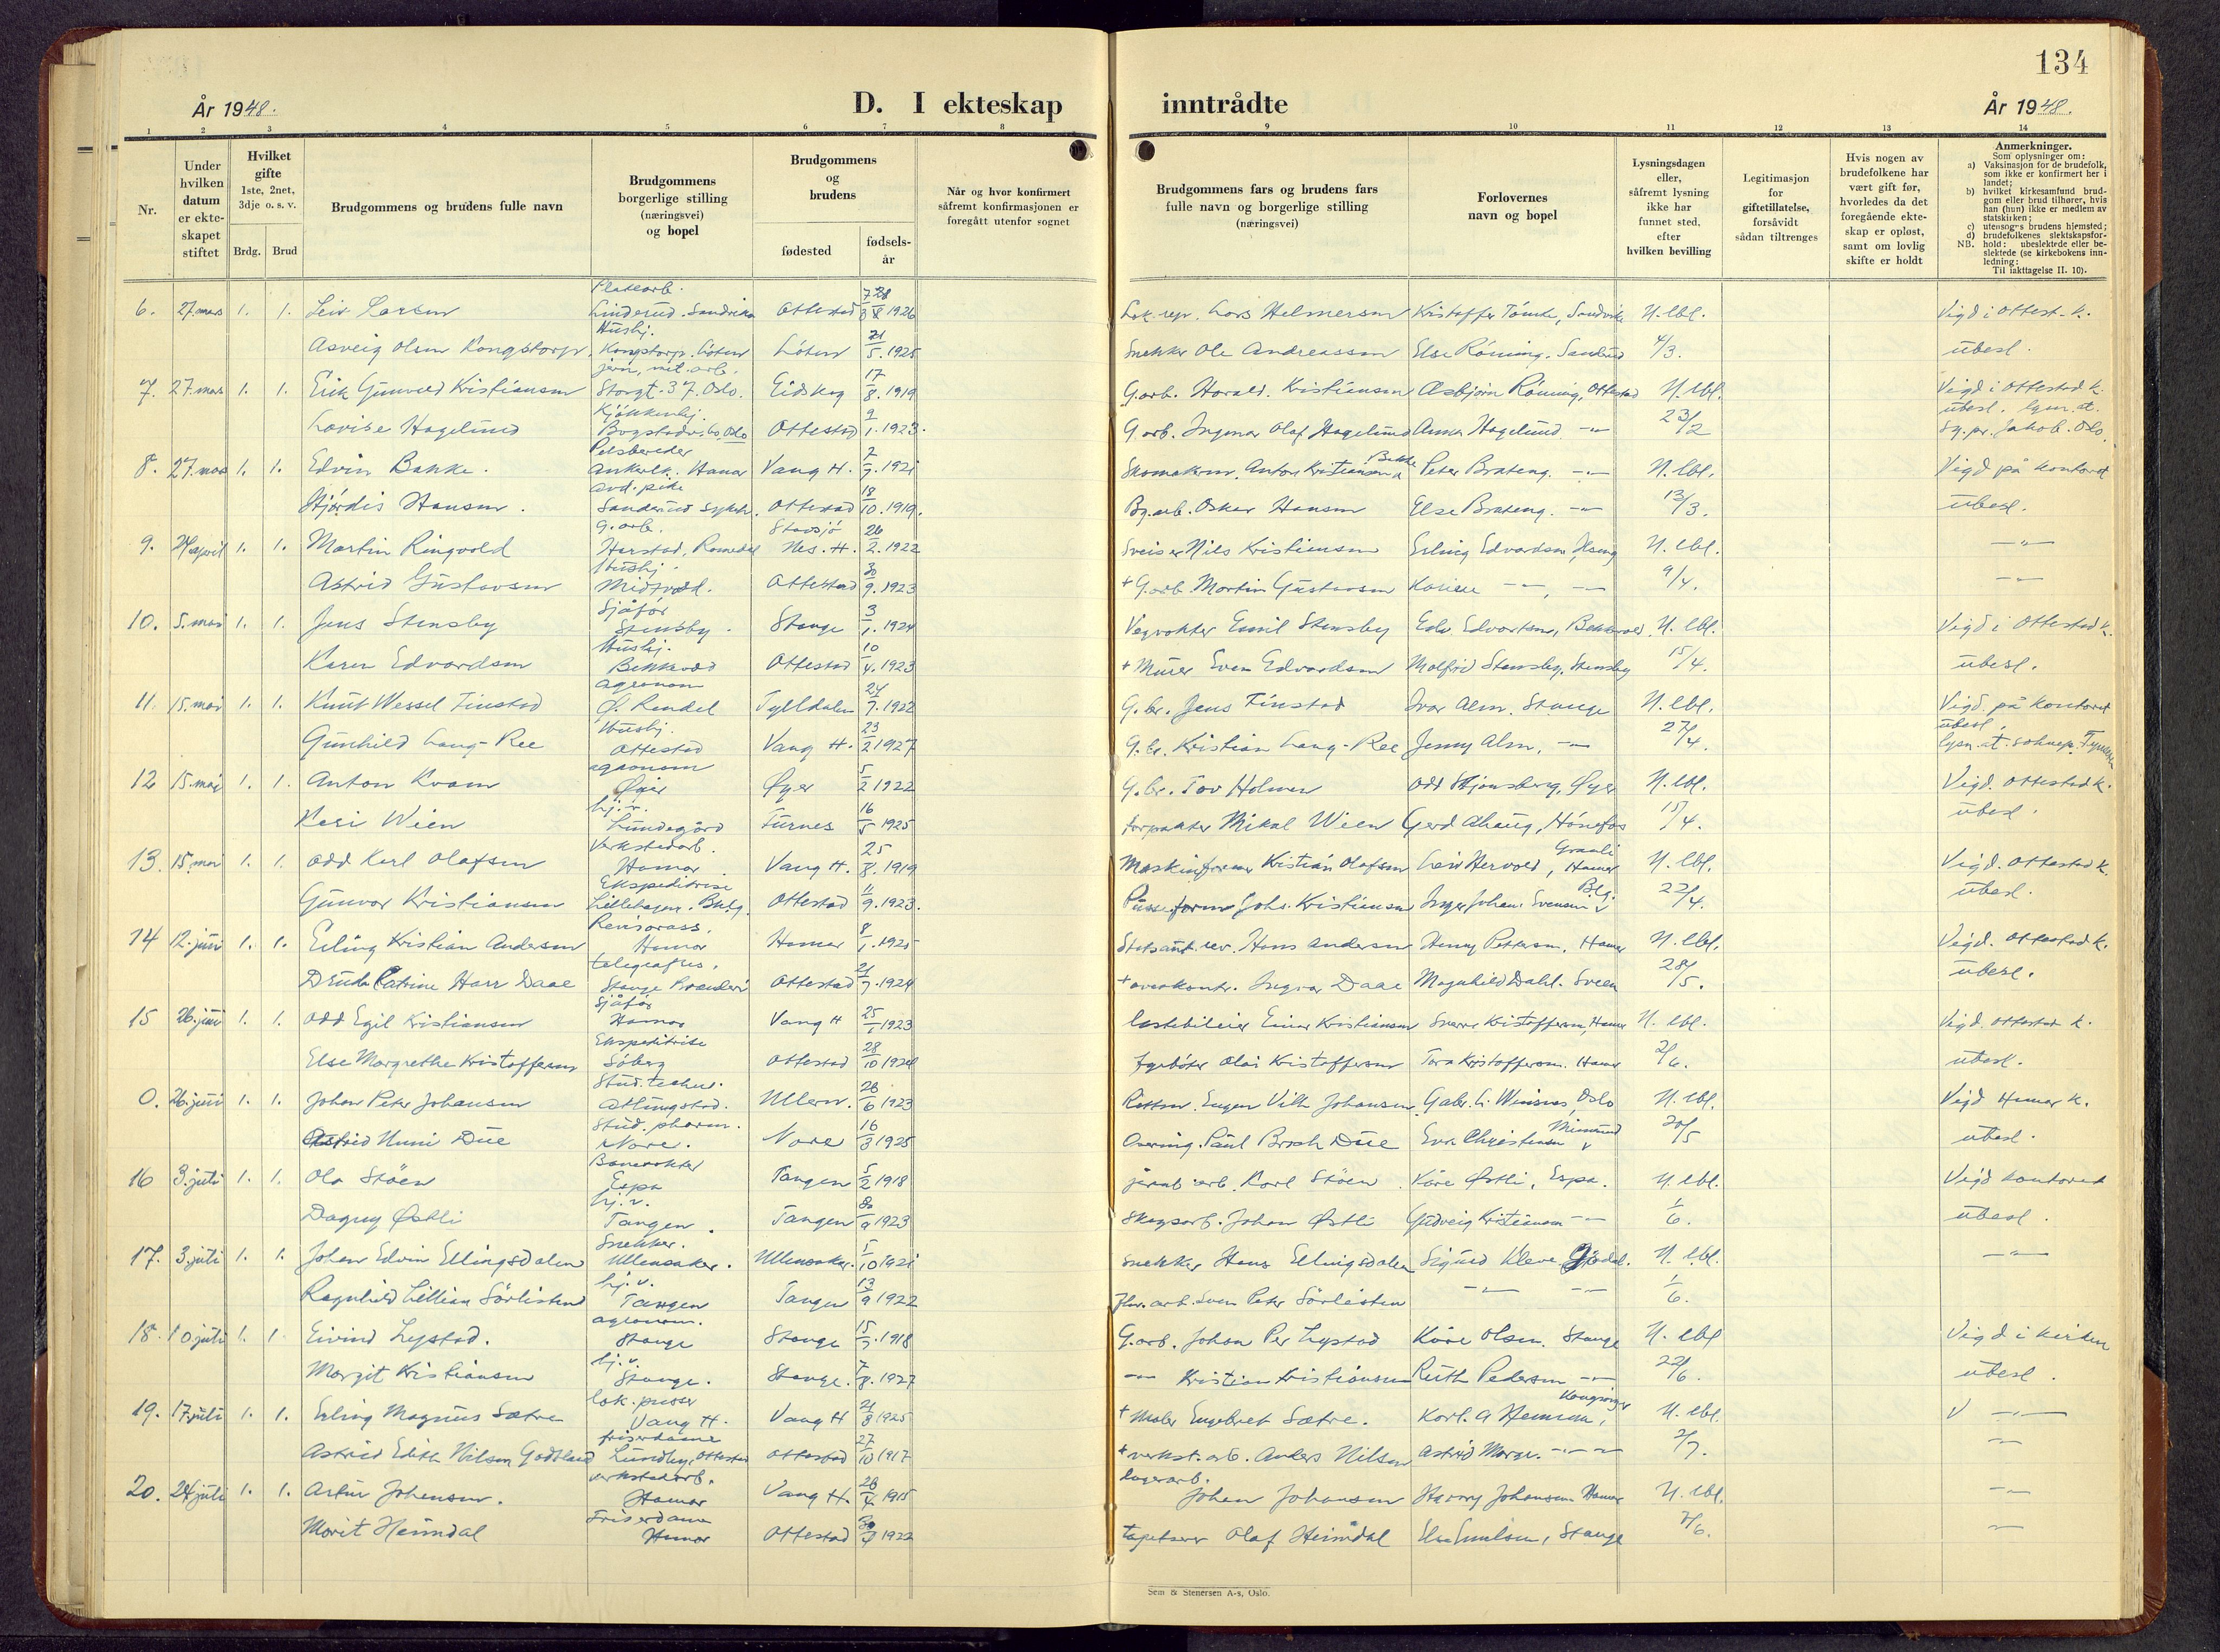 134
År 1948.
D. I ekteskap inntrådte
År 1948.
1 2 3 4 5 6 7 8 9 10 11 12 13 14
Nr.
Under hvilken datum er ekte-skapet stiftet
Hvilket gifte 1ste, 2net, 3dje o. s. v.
Brdg. Brud
Brudgommens og brudens fulle navn
Brudgommens borgerlige stilling (næringsvei) og bopel
Brudgommens og brudens
fødested
fødsels-år
Når og hvor konfirmert såfremt konfirmasjonen er foregått utenfor sognet
Brudgommens fars og brudens fars fulle navn og borgerlige stilling (næringsvei)
Forlovernes navn og bopel
Lysningsdagen eller, såfremt lysning ikke har funnet sted, efter hvilken bevilling
Legitimasjon for giftetillatelse, forsåvidt sådan tiltrenges
Hvis nogen av brudefolkene har vært gift før, hvorledes da det foregående ekte-skap er opløst, samt om lovlig skifte er holdt
Anmerkninger.
Som oplysninger om:
a) Vaksinasjon for de brudefolk, som ikke er konfirmert her i landet;
b) hvilket kirkesamfund brud-gom eller brud tilhører, hvis han (hun) ikke er medlem av statskirken;
c) utensogns brudens hjemsted;
d) brudefolkenes slektskapsfor-hold: ubeslektede eller be-slektede (se kirkebokens inn-ledning:
NB. Til iakttagelse II. 10).
6. 27. mars 1. 1. Leiv Larsen Linderud. Sandvika Ottestad 1926 Lars Helmersen Kristoffer Tomte, Sandvika N. lbl. Vigd i Ottest. k.
Asveig Olsen Kongstorp Hushj. Kongstorp. Løten Løten 21/5. 1925 Snekker Ole Andreassen Else Røning. 4/3. ubesl.
7. 27. mars 1. 1. Erik Gunvald Kristiansen Storgt. 37. Oslo. Eidskog 17/8. 1919 G.arb. Harald. Kristiansen Asbjørn Røning, Ottestad N. lbl. Vigd i Ottestad k.
Lovise Hagelund Kjøkkenhj. Ottestad 9/1. 1923. G.arb. Ingmar Olaf Hagelund Anna Hagelund -"- 23/2 ubesl. lysn. at. Sg. pr. Jakob. Oslo.
8. 27. mars 1. 1. Edvin Bakke. Pelsbereder Ankerlk. Hamar Vang H. 7/7. 1921 Skomakerm. Anton Kristiansen Bakke Peter Brateng. -"- N. lbl. Vigd på kontoret
Hjørdis Hansen. Avd. pike Sanderud sykeh. Ottestad 18/10. 1919. Bg.arb. Oskar Hansen Else Brateng. -"- 13/3. ubesl.
9. 24 april 1. 1. Martin Ringvold G.arb. Harstad, Romedal Stavsjø Nes. H. 26/2. 1922 Sveiser Nils Kristiansen Erling Edvardsen N. lbl. -"-
Astrid Gustavsen Hushj. Midtvold. Ottestad 30/9. 1923 + G.arb. Martin Gustavsen -"-, -"- 9/4. -"-
10. 5. mai 1. 1. Jens Stensby Sjåfør Stensby. Stange 3/1. 1924 Vegvokter Emil Stensby Edv. Edvartsen, Bekkevold N. lbl. Vigd i Ottestad k.
Karen Edvardsen Hushj. Bekkvold Ottestad 10/4. 1923 + Murer Even Edvardsen Molfrid Stensby. Stensby 15/4. ubesl.
11. 15. mai 1. 1. Knut Wessel Finstad agronom Ø. Rendal Tylldalen 24/7. 1922 G.br. Jens Finstad Ivar Alm. Stange N. lbl. Vigd. på kontoret
Gunhild Laug-Ree Hushj. Ottestad Vang H. 23/2 1927 G.br. Kristian Laug-Ree Jenny Alm, -"- 27/4. ubesl. lysn. at. soknepr. Tynset
12 15. mai 1. 1. Anton Kvam agronom Øyer Øyer 5/2 1922 G.br. Tov Holmen Odd Stjonsberg, Øyer N. lbl. Vigd. Ottestad k.
Kari Wien hj.v. Lundegård Furnes 16/5 1925 forpakter Mikal Wien Gerd Ahaug, Hönefos 15/4. ubesl.
13. 15. mai 1. 1. Odd Karl Olafsen Verkstedarb. Hamar Vang H. 25/8. 1919 Maskinformer Kristian Olafsen Leiv Hervold, Hamar N. lbl. Vigd. Ottestad k.
Gunvor Kristiansen Ekspeditrise Ottestad 11/9. 1923. Johs. Kristiansen Inger Johan. Svensen 22/4. ubesl.
14 12. juni 1. 1. Erling Kristian Andersen Revisorass. Hamar Hamar 8/1. 1921 Statsaut. rev. Hans Andersen Henny Pettersen. Hamar N. lbl. Vigd. Ottestad k.
Drude Catrine Harr Daae telegrafbes. Stange Brenderi Ottestad 21/7. 1924 + overkontr. Ingvar Daae Magnhild Dahl. Sveen 28/5. ubesl.
15 26. juni 1. 1. Odd Egil Kristiansen Sjåfør Hamar Vang H 25/1 1923 Lastebileier Einar Kristiansen Sverre Kristoffersen, Hamar N. lbl. Vigd. Ottestad k.
Else Margrethe Kristoffersen Ekspeditrise Søberg Ottestad 28/10 1924 fyrbøter Olai Kristoffersen Tora Kristoffersen. Hamar 2/6. ubesl.
0. 26. juni 1. 1. Johan Peter Johansen Stud. techn. Ullern. 28/6 1923 Eugen Vilh Johansen Gabr. L. Winsnes, Oslo N. lbl. Vigd Hamar k.
Astrid Unni Due Stud. pharm. Nore. Nore 16/3 1925 Overing. Paul Broch Due Eva Christensen Minnesund 20/5 ubesl.
16 3. juli 1. 1. Ola Stöen Banevokter Espa Tangen 5/2 1918 jernb. arb. Karl Stöen Kåre Østli, Espa. N. lbl. Vigd kontoret
Dagny Østli hj.v. Tangen. Tangen 1923 Skogsarb. Johan Østli Gudveig Kristiansen -"- 1/6. ubesl.
17. 3. juli 1. 1. Johan Edvin Ellingsdalen Snekker. Ullensaker. Ullensaker. 5/10 1921 snekker Hans Ellingsdalen Sigurd Kleve N. lbl. -"-
Ragnhild Lillian Sörlisten hj.v. Tangen Tangen 13/9 1922 Sven Peter Sörlisten -"- -"- 1/6.
18. 10. juli 1. 1. Eivind Lystad. agronom. Stange Stange 15/7. 1918 G.arb. Johan Per Lystad Kåre Olsen. Stange N. lbl Vigd i kirken
Margit Kristiansen hj.v. Stange. Stange. 7/8. 1927 -"- Kristian Kristiansen Ruth Pedersen -"- 22/6. ubesl.
19. 17. juli 1. 1. Erling Magnus Sætre lok. pusser Vang H. Vang H 21/8 1925 + Maler Engebret Sætre. Karl. A Hemsen, Kongsvinger N. lbl. V -"-
Astrid Edith Nilsen Godtland friserdame Lundby, Ottestad Ottestad 27/10 1917 + verkst. arb. Anders Nilsen Astrid -"- -"- 2/7. -"-
20. 24 juli 1. 1. Artur Johansen. verkstedarb. Hamar Vang H. 26/4. 1915 Lagerarb. Johan Johansen Harry Johansen Hamar N. lbl. -"-
Marit Heimdal Friserdame Hamar Ottestad 1922 tapetserer Olaf Heimdal Else Emilsen, Stange -"-
Sem & Stenersen A-s, Oslo.